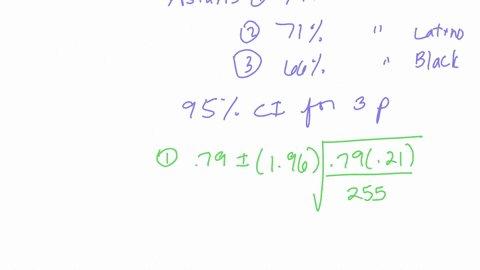 Asians ①
② 71% " Latino
③ 66% " Black
95% CI for 3 p
① .79 ± (1.96) √.79(.21) / 255